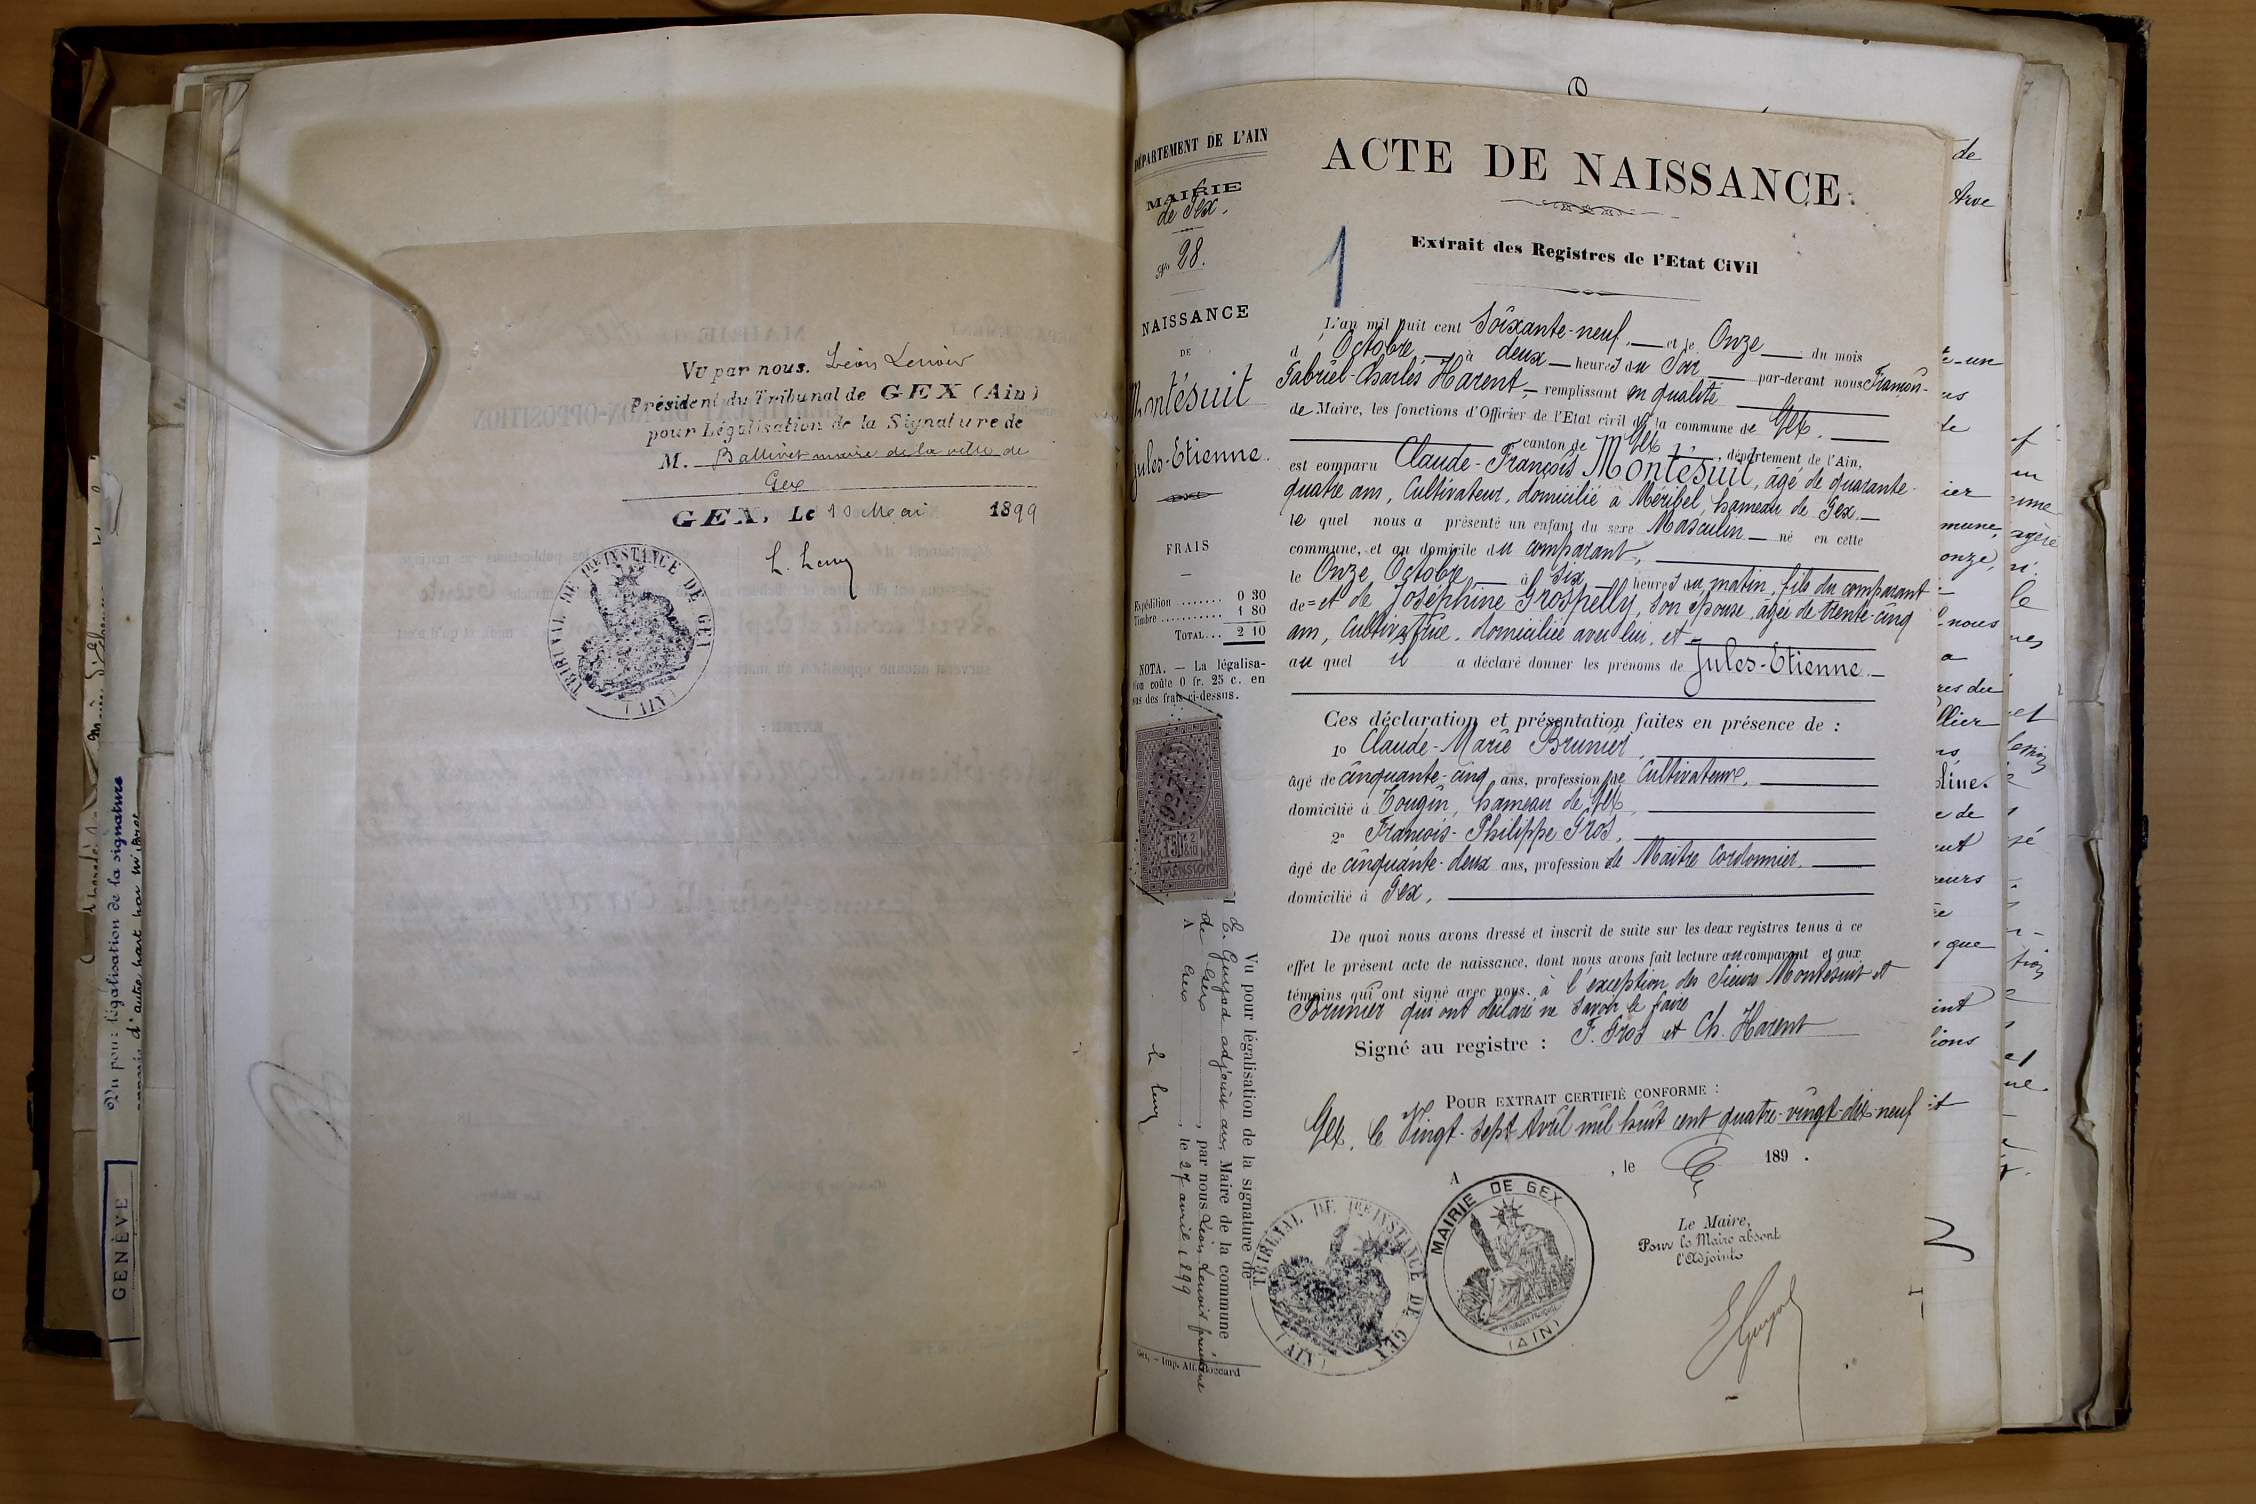 Vu par nous. Léon Lenoir
Président du Tribunal de GEX (Ain)
pour Légalisation de la Signature de
M. Ballivet maire de la ville de
Gex
GEX, Le 10 Mai 1899
TRIBUNAL DE 1RE INSTANCE DE GEX
(AIN)
Vu pour légalisation de la signature
d'autre part
GENÈVE
DÉPARTEMENT DE L'AIN
MAIRIE
de Gex.
No 28.
NAISSANCE
DE
Montésuit
Jules-Etienne.
FRAIS
Expédition ........ 0 30
Timbre ........... 1 80
TOTAL... 2 10
NOTA. — La légalisa-
tion coûte 0 fr. 25 c. en
sus des frais ci-dessus.
DIMENSION
Vu pour légalisation de la signature de
adjoint au Maire de la commune
de Gex, par nous Léon Lenoir président
A Gex, le 27 avril 1899
Gex, — Imp. Alf. Boccard
ACTE DE NAISSANCE
1
Extrait des Registres de l'Etat CiVil
L'an mil huit cent Soixante-neuf, — et le Onze — du mois
d'Octobre — à deux — heures du Soir — par-devant nous François-
Gabriel-Charles Harent, — remplissant en qualité
de Maire, les fonctions d'Officier de l'Etat civil de la commune de Gex. —
canton de Gex, département de l'Ain,
est comparu Claude-François Montésuit, âgé de quarante-
quatre ans, Cultivateur, domicilié à Méribel, hameau de Gex. —
le quel nous a présenté un enfant du sexe Masculin — né en cette
commune, et au domicile du comparant,
le Onze Octobre — à Six — heures du matin, fils du comparant
de = et de Joséphine Grospelly, son épouse, âgée de trente-cinq
ans, Cultivatrice, domiciliée avec lui, et
au quel il a déclaré donner les prénoms de Jules-Etienne. —
Ces déclaration et présentation faites en présence de :
1o Claude-Marie Brunier
âgé de cinquante-cinq ans, profession de Cultivateur,
domicilié à Tougin, hameau de Gex,
2o François-Philippe Gros,
âgé de cinquante-deux ans, profession de Maître Cordonnier.
domicilié à Gex,
De quoi nous avons dressé et inscrit de suite sur les deux registres tenus à ce
effet le présent acte de naissance, dont nous avons fait lecture au comparant et aux
témoins qui ont signé avec nous. à l'exception des Sieurs Montésuit et
Brunier qui ont déclaré ne savoir le faire
Signé au registre : F. Gros et Ch. Harent
POUR EXTRAIT CERTIFIÉ CONFORME :
Gex, le Vingt-Sept Avril mil huit cent quatre-vingt-dix-neuf
A , le 189 .
TRIBUNAL DE 1RE INSTANCE DE GEX
(AIN)
MAIRIE DE GEX
(AIN)
Le Maire,
Pour le Maire absent
l'Adjoint